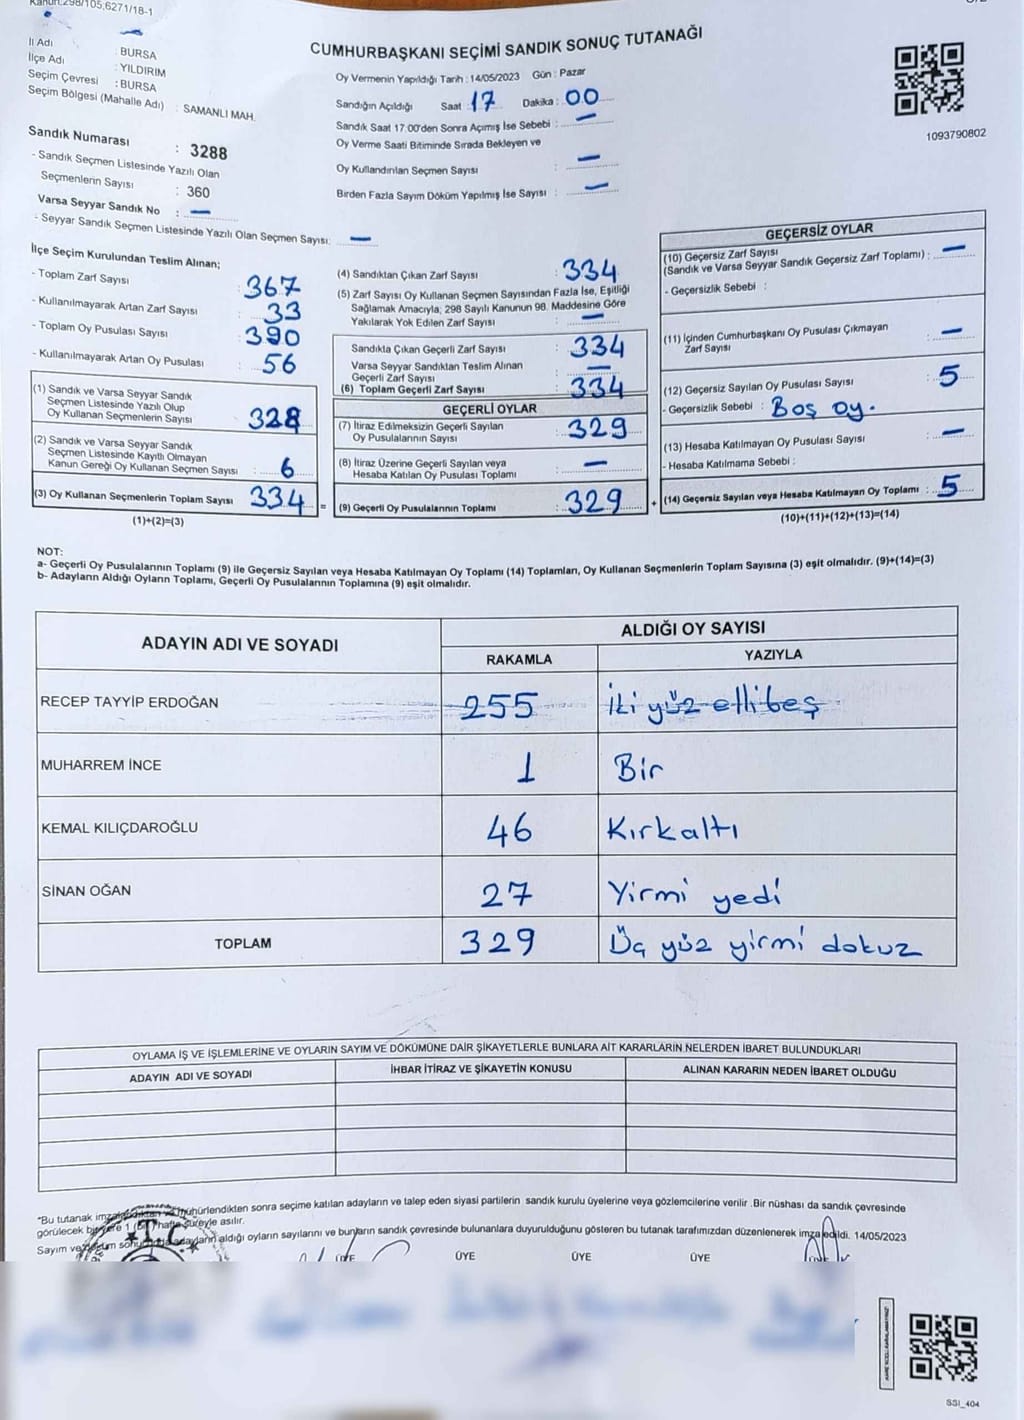 Kanun:298/105,6271/18-1
İl Adı : BURSA
İlçe Adı : YILDIRIM
Seçim Çevresi : BURSA
Seçim Bölgesi (Mahalle Adı) : SAMANLI MAH.
Sandık Numarası : 3288
- Sandık Seçmen Listesinde Yazılı Olan
Seçmenlerin Sayısı : 360
Varsa Seyyar Sandık No : —
- Seyyar Sandık Seçmen Listesinde Yazılı Olan Seçmen Sayısı: —
CUMHURBAŞKANI SEÇİMİ SANDIK SONUÇ TUTANAĞI
Oy Vermenin Yapıldığı Tarih : 14/05/2023 Gün : Pazar
Sandığın Açıldığı Saat : 17 Dakika : 00
Sandık Saat 17:00'den Sonra Açımış İse Sebebi : —
Oy Verme Saati Bitiminde Sırada Bekleyen ve
Oy Kullandırılan Seçmen Sayısı : —
Birden Fazla Sayım Döküm Yapılmış İse Sayısı : —
1093790802
İlçe Seçim Kurulundan Teslim Alınan;
- Toplam Zarf Sayısı : 367
- Kullanılmayarak Artan Zarf Sayısı : 33
- Toplam Oy Pusulası Sayısı : 390
- Kullanılmayarak Artan Oy Pusulası : 56
(1) Sandık ve Varsa Seyyar Sandık
Seçmen Listesinde Yazılı Olup
Oy Kullanan Seçmenlerin Sayısı : 328
(2) Sandık ve Varsa Seyyar Sandık
Seçmen Listesinde Kayıtlı Olmayan
Kanun Gereği Oy Kullanan Seçmen Sayısı : 6
(3) Oy Kullanan Seçmenlerin Toplam Sayısı : 334
(1)+(2)=(3)
(4) Sandıktan Çıkan Zarf Sayısı : 334
(5) Zarf Sayısı Oy Kullanan Seçmen Sayısından Fazla İse, Eşitliği
Sağlamak Amacıyla; 298 Sayılı Kanunun 98. Maddesine Göre
Yakılarak Yok Edilen Zarf Sayısı : —
Sandıkta Çıkan Geçerli Zarf Sayısı : 334
Varsa Seyyar Sandıktan Teslim Alınan
Geçerli Zarf Sayısı : —
(6) Toplam Geçerli Zarf Sayısı : 334
GEÇERLİ OYLAR
(7) İtiraz Edilmeksizin Geçerli Sayılan
Oy Pusulalarının Sayısı : 329
(8) İtiraz Üzerine Geçerli Sayılan veya
Hesaba Katılan Oy Pusulası Toplamı : —
= (9) Geçerli Oy Pusulalarının Toplamı : 329 +
GEÇERSİZ OYLAR
(10) Geçersiz Zarf Sayısı
(Sandık ve Varsa Seyyar Sandık Geçersiz Zarf Toplamı) : —
- Geçersizlik Sebebi :
(11) İçinden Cumhurbaşkanı Oy Pusulası Çıkmayan
Zarf Sayısı : —
(12) Geçersiz Sayılan Oy Pusulası Sayısı : 5
- Geçersizlik Sebebi : Boş oy.
(13) Hesaba Katılmayan Oy Pusulası Sayısı : —
- Hesaba Katılmama Sebebi :
(14) Geçersiz Sayılan veya Hesaba Katılmayan Oy Toplamı : 5
(10)+(11)+(12)+(13)=(14)
NOT:
a- Geçerli Oy Pusulalarının Toplamı (9) ile Geçersiz Sayılan veya Hesaba Katılmayan Oy Toplamı (14) Toplamları, Oy Kullanan Seçmenlerin Toplam Sayısına (3) eşit olmalıdır. (9)+(14)=(3)
b- Adayların Aldığı Oyların Toplamı, Geçerli Oy Pusulalarının Toplamına (9) eşit olmalıdır.
ADAYIN ADI VE SOYADI ALDIĞI OY SAYISI
RAKAMLA YAZIYLA
RECEP TAYYİP ERDOĞAN 255 İki yüz ellibeş
MUHARREM İNCE 1 Bir
KEMAL KILIÇDAROĞLU 46 Kırkaltı
SİNAN OĞAN 27 Yirmi yedi
TOPLAM 329 Üç yüz yirmi dokuz
OYLAMA İŞ VE İŞLEMLERİNE VE OYLARIN SAYIM VE DÖKÜMÜNE DAİR ŞİKAYETLERLE BUNLARA AİT KARARLARIN NELERDEN İBARET BULUNDUKLARI
ADAYIN ADI VE SOYADI İHBAR İTİRAZ VE ŞİKAYETİN KONUSU ALINAN KARARIN NEDEN İBARET OLDUĞU
"Bu tutanak imzalandıktan ve mühürlendikten sonra seçime katılan adayların ve talep eden siyasi partilerin sandık kurulu üyelerine veya gözlemcilerine verilir .Bir nüshası da sandık çevresinde
görülecek bir yere 1 (Bir) hafta süreyle asılır.
Sayım ve döküm adayların aldığı oyların sayılarını ve bunların sandık çevresinde bulunanlara duyurulduğunu gösteren bu tutanak tarafımızdan düzenlenerek imza edildi. 14/05/2023
T.C.
ÜYE ÜYE ÜYE ÜYE
SSI_404